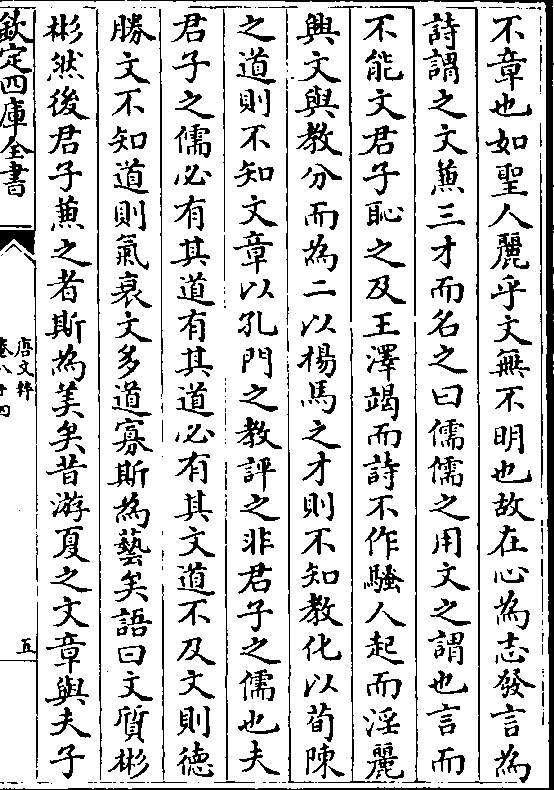 不章也如聖人麗乎文無不明也故在心為志發言為
詩謂之文蕪三才而名之曰儒儒之用文之謂也言而
不能文君子恥之及王澤竭而詩不作騷人起而淫麗
興文與教分而為二以楊馬之才則不知教化以荀陳
之道則不知文章以孔門之教評之非君子之儒也夫
君子之儒必有其道有其道必有其文道不及文則德
勝文不知道則氣衰文多道寡斯為藝矣語曰文質彬
彬然後君子蕪之者斯為美矣昔游夏之文章與夫子
欽定四庫全書
唐文粹
卷八十四
五